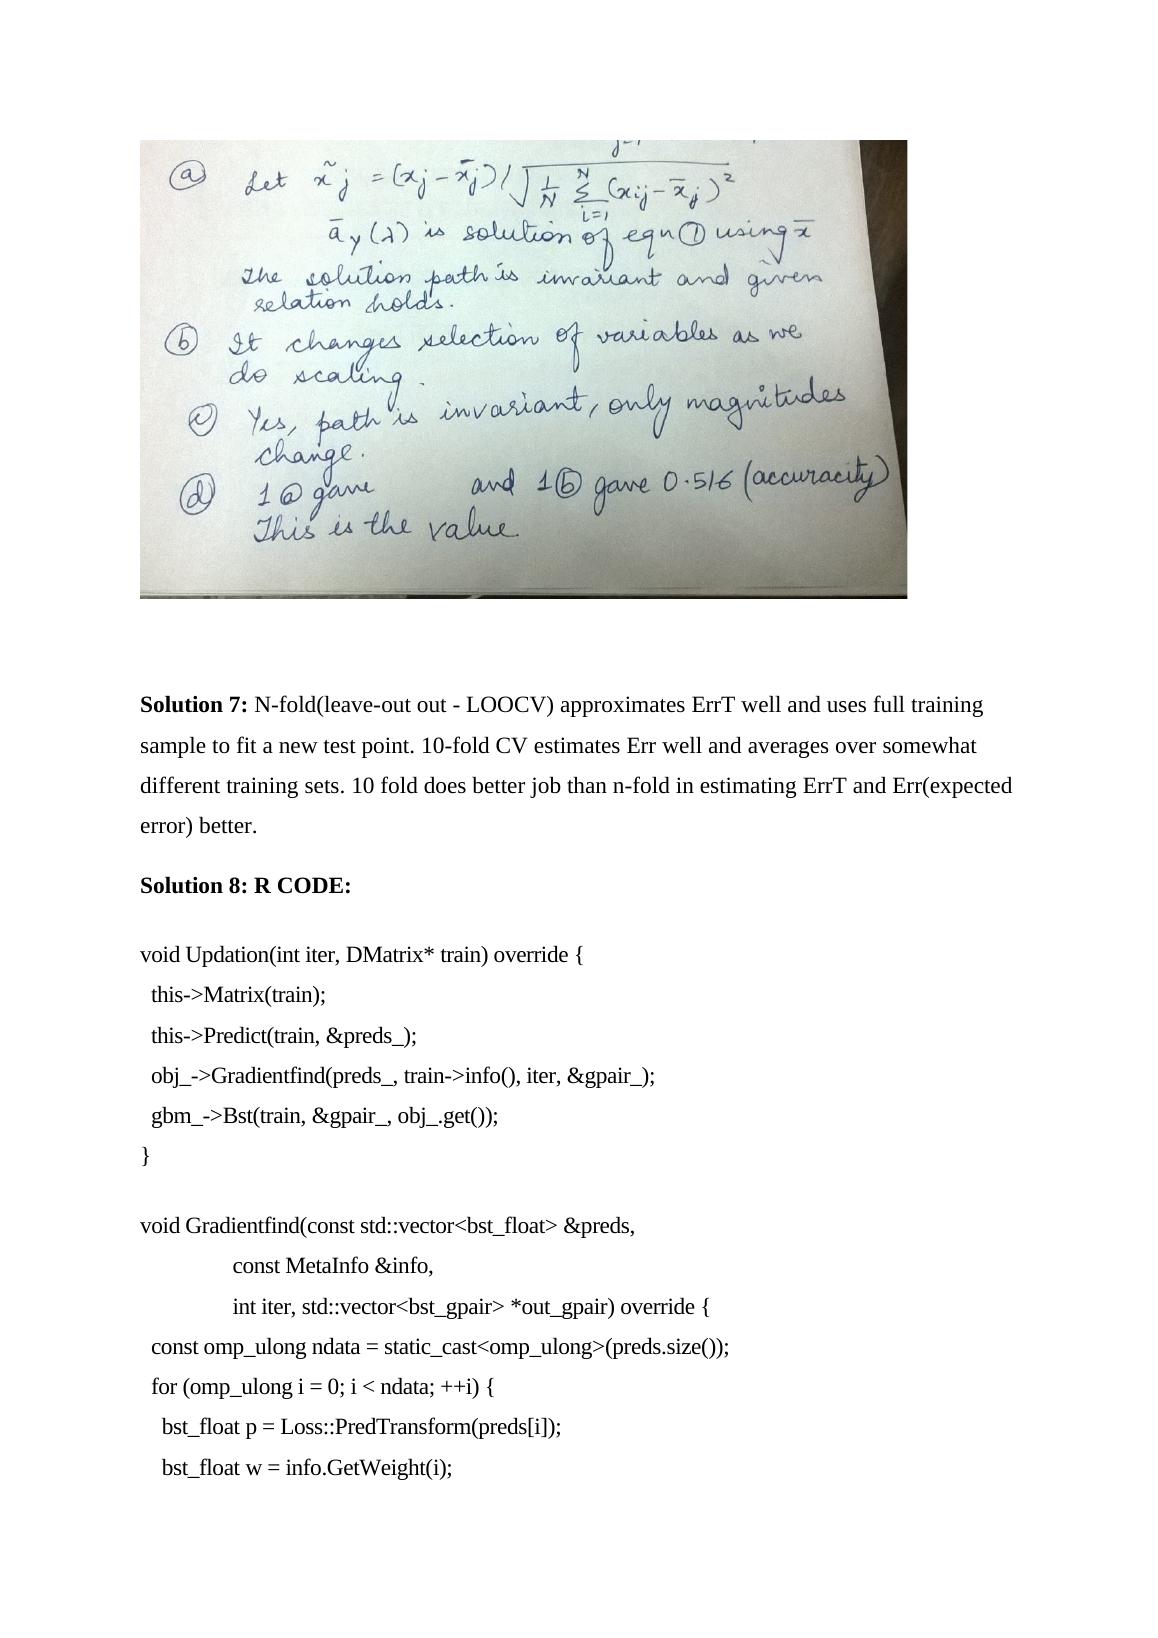 ⓐ Let x̃j = (xj - x̄j) / √(1/N Σ_{i=1}^{N} (xij - x̄j)²
āγ(λ) is solution of eqn ① using x̄
The solution path is invariant and given
relation holds.
ⓑ It changes selection of variables as we
do scaling.
ⓒ Yes, path is invariant, only magnitudes
change.
ⓓ 1ⓐ gave and 1ⓑ gave 0.516 (accuracity)
This is the value.
Solution 7: N-fold(leave-out out - LOOCV) approximates ErrT well and uses full training
sample to fit a new test point. 10-fold CV estimates Err well and averages over somewhat
different training sets. 10 fold does better job than n-fold in estimating ErrT and Err(expected
error) better.
Solution 8: R CODE:
void Updation(int iter, DMatrix* train) override {
this->Matrix(train);
this->Predict(train, &preds_);
obj_->Gradientfind(preds_, train->info(), iter, &gpair_);
gbm_->Bst(train, &gpair_, obj_.get());
}
void Gradientfind(const std::vector<bst_float> &preds,
const MetaInfo &info,
int iter, std::vector<bst_gpair> *out_gpair) override {
const omp_ulong ndata = static_cast<omp_ulong>(preds.size());
for (omp_ulong i = 0; i < ndata; ++i) {
bst_float p = Loss::PredTransform(preds[i]);
bst_float w = info.GetWeight(i);